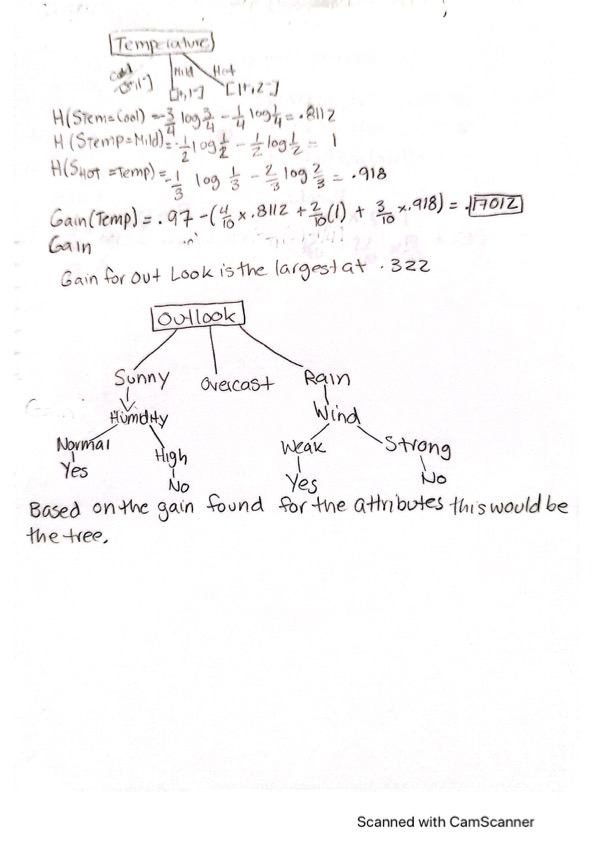 Temperature
Mild Hot
[1+,1-] [1+,2-]
H(Stem=Cool) = -3/4 log 3/4 - 1/4 log 1/4 = .8112
H(Stemp=Mild) = -1/2 log 1/2 - 1/2 log 1/2 = 1
H(SHot =Temp) = -1/3 log 1/3 - 2/3 log 2/3 = .918
Gain(Temp) = .97 - (4/10 x .8112 + 2/10 (1) + 3/10 x .918) = .17012
Gain
Gain for Out Look is the largest at .322
Outlook
Sunny Overcast Rain
Humdity Wind
Normal High Weak Strong
Yes No Yes No
Based on the gain found for the attributes this would be
the tree.
Scanned with CamScanner